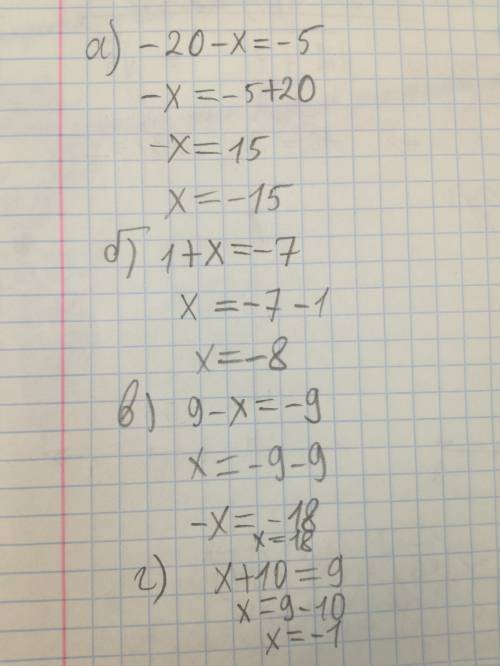 а) -20-x=-5
-x=-5+20
-x=15
x=-15
б) 1+x=-7
x=-7-1
x=-8
в) 9-x=-9
x=-9-9
-x=-18
x=18
г) x+10=9
x=9-10
x=-1